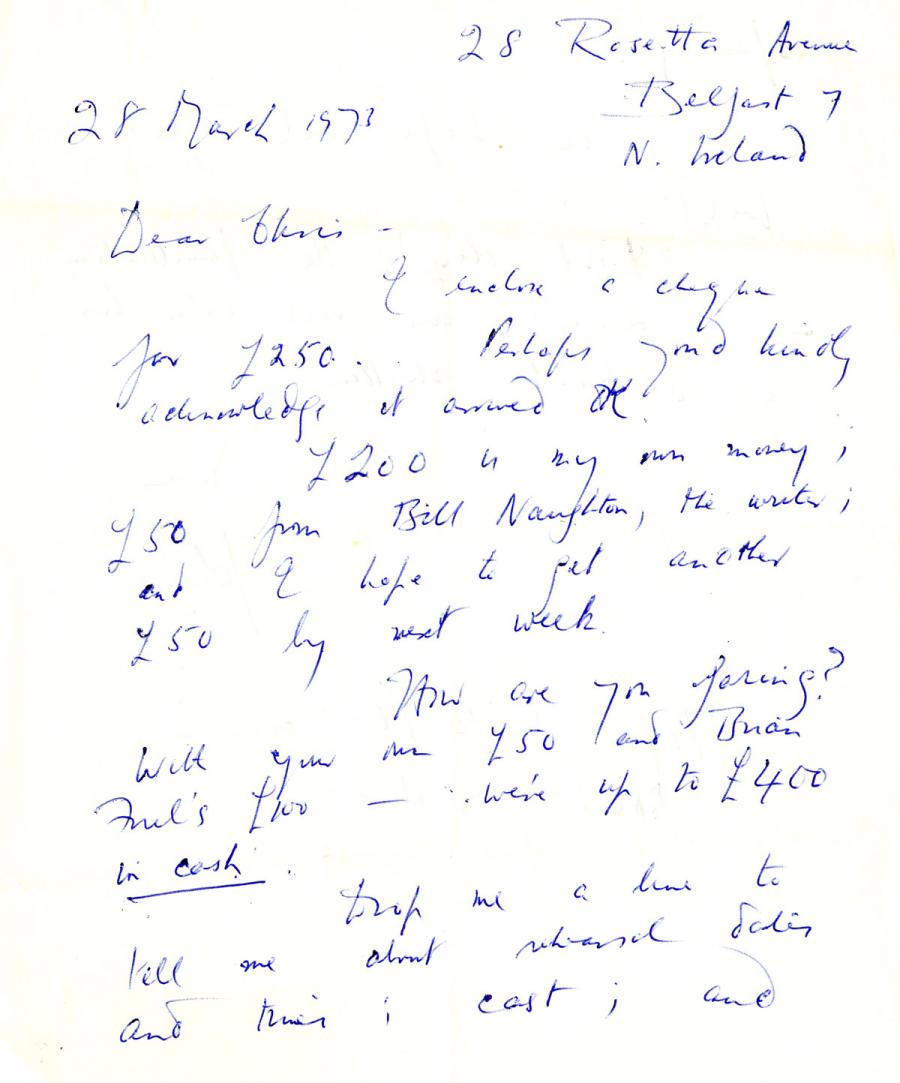 28 Rosetta Avenue
Belfast 7
N. Ireland
28 March 1973
Dear Chris -
I enclose a cheque
for £250. Perhaps you'd kindly
acknowledge it arrived OK.
£200 is my own money;
£50 from Bill Naughton, the writer;
and I hope to get another
£50 by next week.
How are you faring?
With your own £50 and Brian
Friel's £100 — we're up to £400
in cash.
Drop me a line to
tell me about rehearsal dates
and times; cast; and